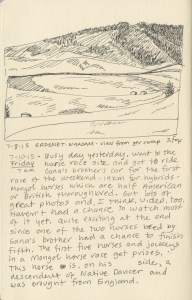 7-8-15 ERDENET NAADAM - view from ger camp
7-10-15 - Busy day yesterday, went to the
Friday horse race site and got to ride
7 AM brothers' car for the first
race of the weekend. 18km for hybrids -
Mongol horses which are half American
or British thoroughbred. Got lots of
great photos and, I think, video, too.
Haven't had a chance to watch most
of it yet. Quite exciting at the end
since one of the two horses owned by
brother had a chance to finish
fifth. The first five horses and jockeys
in a Mongol horse race get prizes.
This horse is, on his side, a
descendent of Native Dancer and
was brought from England.